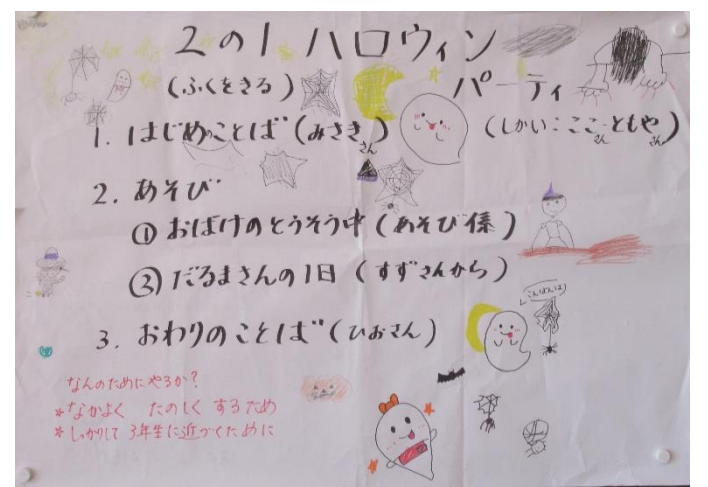 2の1 ハロウィン
パーティ
(ふくをきる)
(しかい:ここさん ともやさん)
1. はじめのことば(みさきさん)
2. あそび
① おばけのとうそう中(あそび係)
② だるまさんの1日(すずさんから)
こんばんは
3. おわりのことば(ひおさん)
なんのためにやるか?
*なかよく たのしく するため
*しっかりして 3年生に近づくために